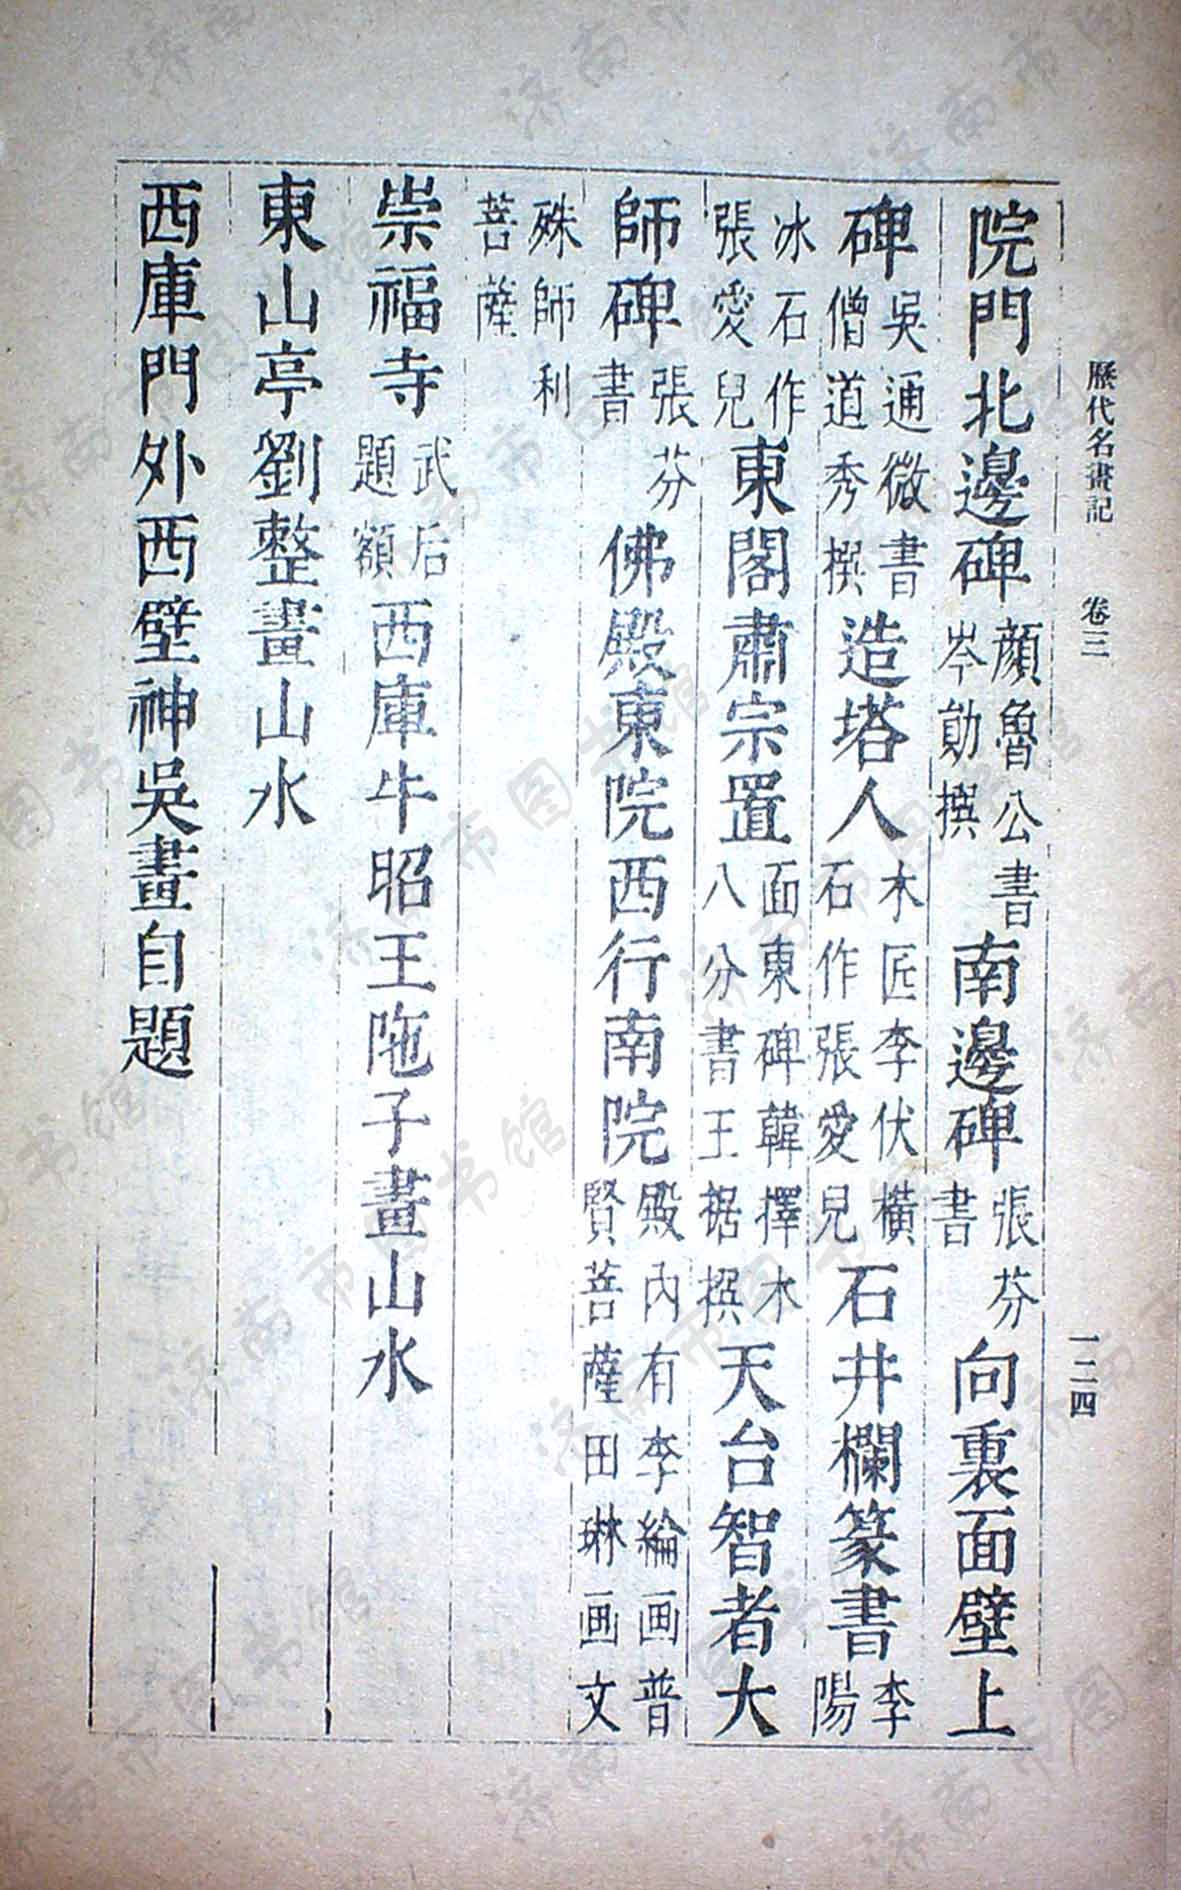 歷代名畫記 卷三 一二四
院門北邊碑顏魯公書岑勛撰南邊碑張芬書向裏面壁上
碑吳通微書僧道秀撰造塔人木匠李伏橫石作張愛兒石井欄篆書李陽
冰石作張愛兒東閣肅宗置面東碑韓擇木八分書王裾撰天台智者大
師碑張芬書佛殿東院西行南院殿內有李綸画普賢菩薩田琳画文
殊師利菩薩
崇福寺武后題額西庫牛昭王陁子畫山水
東山亭劉整畫山水
西庫門外西壁神吳畫自題
济南市图书馆